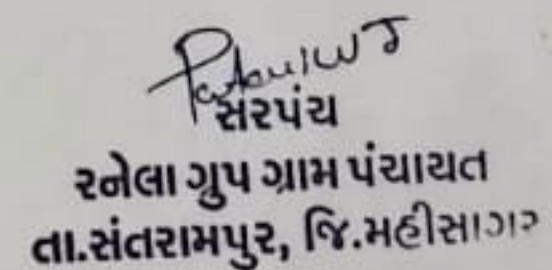 સરપંચ
રનેલા ગ્રુપ ગ્રામ પંચાયત
તા.સંતરામપુર, જિ.મહીસાગર